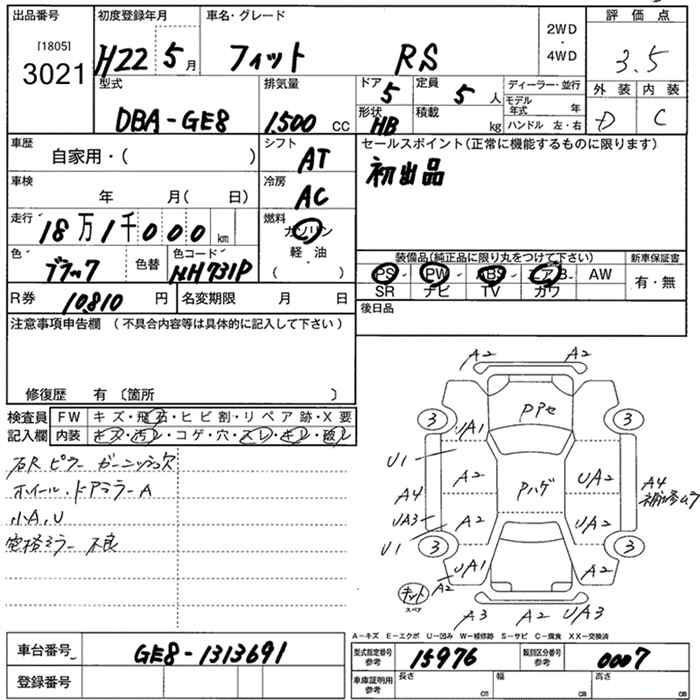 出品番号 初度登録年月 車名・グレード 評価点
[1805]
3021
H22 5月 フィット RS
2WD
・
4WD
3.5
外装 内装
D C
型式 排気量 ドア 5 定員 5人 ディーラー・並行
DBA-GE8 1,500 CC
形状 HB 積載 kg
モデル年式 年
ハンドル 左・右
車歴 自家用・( )
シフト AT
セールスポイント(正常に機能するものに限ります)
初出品
車検 年 月( 日)
冷房 AC
走行 18万1千000km
燃料 ガソリン
軽・油
( )
色 ブラック 色替 色コード NH731P
装備品(純正品に限り丸をつけて下さい) 新車保証書
PS PW ABS エアB. AW
SR ナビ TV カワ
有・無
R券 10,810円 名変期限 月 日
後日品
注意事項申告欄 (不具合内容等は具体的に記入して下さい)
修復歴 有 〔箇所 〕
検査員 FW キズ・飛石・ヒビ割・リペア跡・X要
記入欄 内装 キズ・汚レ・コゲ・穴・スレ・キレ・破レ
右R ピラー ガーニッシュ欠
ホイール・ドアミラーA
小A,U
電格ミラー 不良
A2 A2
3 3
Pアセ
UA1
U1 A2 Pハゲ UA2 A4
補修ムラ
A4
UA3 A2 UA2
U1
3 3
UA1 A2
キット
スペア
A2
A3 A2 UA3
A-キズ E-エクボ U-凹み W-補修跡 S-サビ C-腐食 XX-交換済
車台番号 GE8-1313691
型式指定番号 参考 15976 類別区分番号 参考 0007
登録番号
車庫証明用 参考 長さ cm 幅 cm 高さ cm